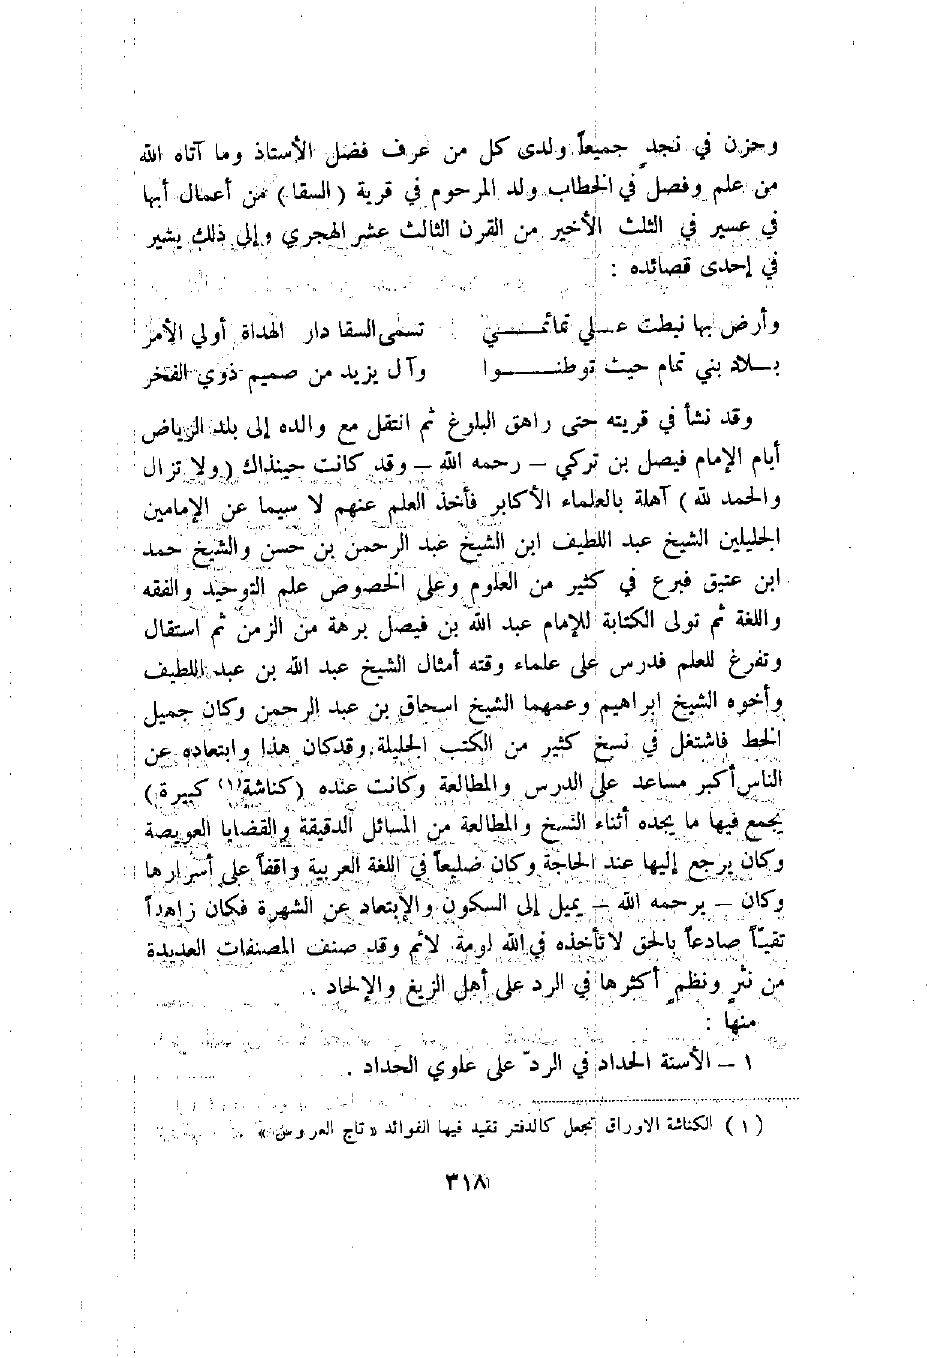 وحزن في نجدٍ جميعاً ولدى كل من عرف فضل الأستاذ وما آتاه الله
من علم وفصل في الخطاب ولد المرحوم في قرية (السقا) من أعمال أبها
في عسير في الثلث الأخير من القرن الثالث عشر الهجري وإلى ذلك يشير
في إحدى قصائده :
وأرض بها نيطت عـــلي تمائمـــــي تسمى السقا دار الهداة أولي الأمر
بــلاد بني تمام حيث توطنـــــوا وآل يزيد من صميم ذوي الفخر
وقد نشأ في قريته حتى راهق البلوغ ثم انتقل مع والده إلى بلد الرياض
أيام الإمام فيصل بن تركي – رحمه الله – وقد كانت حينذاك (ولا تزال
والحمد لله) آهلة بالعلماء الأكابر فأخذ العلم عنهم لا سيما عن الإمامين
الجليلين الشيخ عبد اللطيف ابن الشيخ عبد الرحمن بن حسن والشيخ حمد
ابن عتيق فبرع في كثير من العلوم وعلى الخصوص علم التوحيد والفقه
واللغة ثم تولى الكتابة للإمام عبد الله بن فيصل برهة من الزمن ثم استقال
وتفرغ للعلم فدرس على علماء وقته أمثال الشيخ عبد الله بن عبد اللطيف
وأخوه الشيخ ابراهيم وعمهما الشيخ اسحاق بن عبد الرحمن وكان جميل
الخط فاشتغل في نسخ كثير من الكتب الجليلة وقد كان هذا وابتعاده عن
الناس أكبر مساعد على الدرس والمطالعة وكانت عنده (كناشة(١) كبيرة)
يجمع فيها ما يجده أثناء النسخ والمطالعة من المسائل الدقيقة والقضايا العويصة
وكان يرجع إليها عند الحاجة وكان ضليعاً في اللغة العربية واقفاً على أسرارها
وكان – يرحمه الله – يميل إلى السكون والإبتعاد عن الشهرة فكان زاهداً
تقيّاً صادعاً بالحق لا تأخذه في الله لومة لائم وقد صنف المصنفات العديدة
من نثرٍ ونظمٍ أكثرها في الرد على أهل الزيغ والإلحاد .
منها :
١ – الأسنة الحداد في الردّ على علوي الحداد .
(١) الكناشة الاوراق تجعل كالدفتر تقيد فيها الفوائد « تاج العروس »
٣١٨